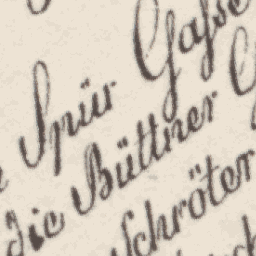 Spür Gasse
die Büttner
Schröter